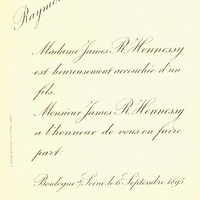 Raymo
Madame James R. Hennessy
est heureusement accouchée d'un
fils.
Monsieur James R. Hennessy
a l'honneur de vous en faire
part.
Boulogne s/ Seine, le 6 Septembre 1895